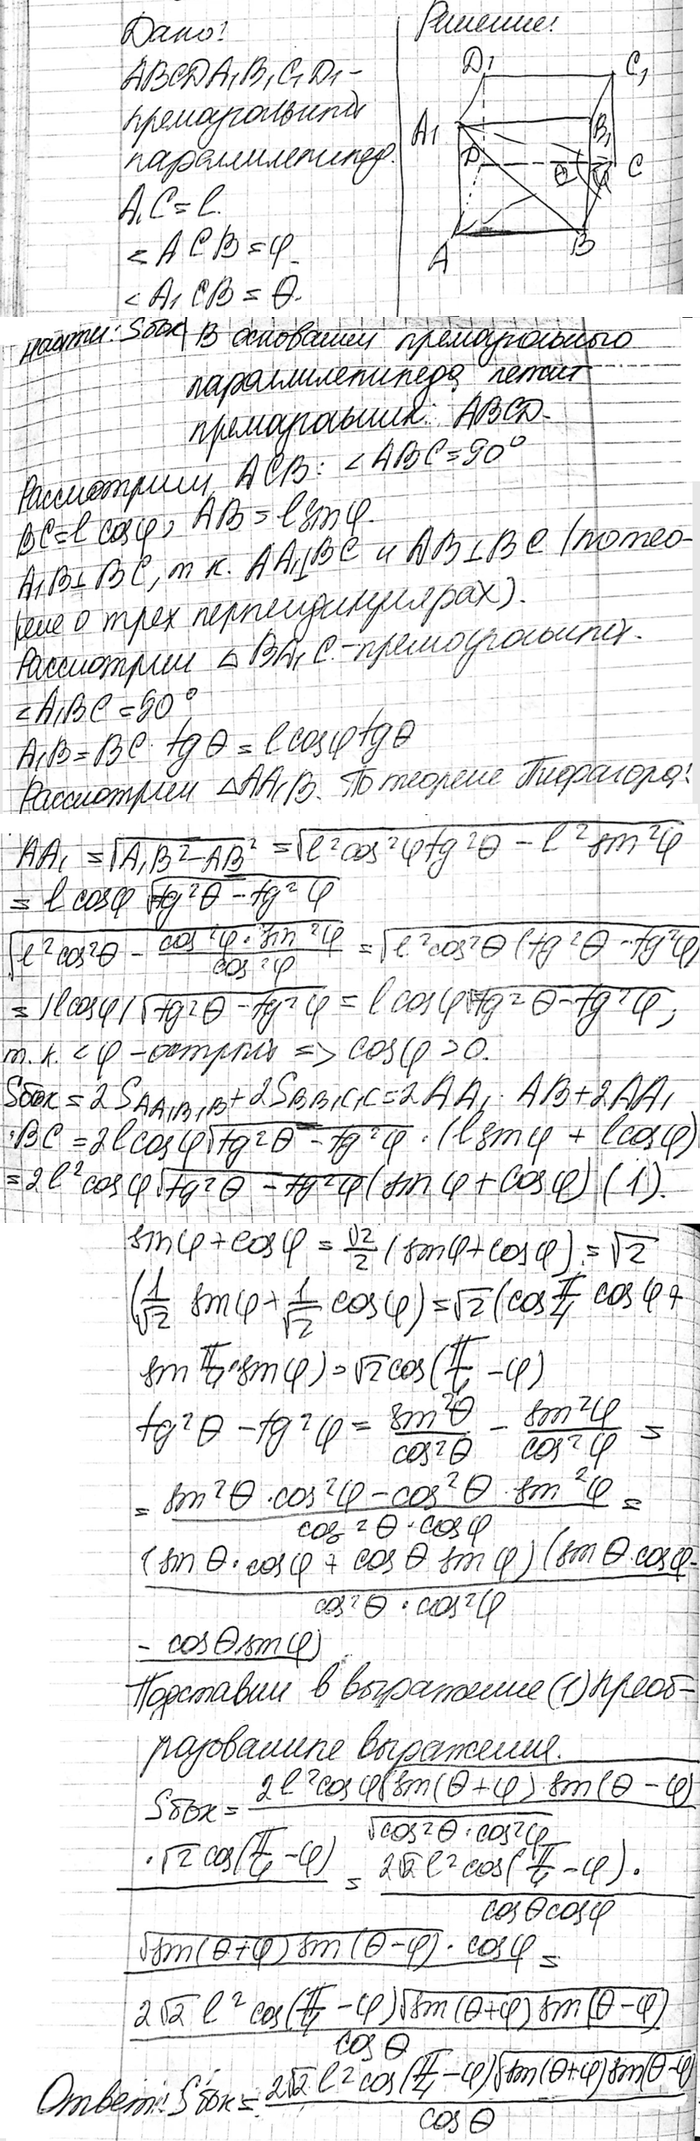 Дано:
ABCDA₁B₁C₁D₁ –
прямоугольный
параллелепипед.
A₁C = l.
∠ACB = φ.
∠A₁CB = θ.
Решение:
D₁ C₁
A₁ B₁
D θ φ C
A B
Найти: Sбок
В основании прямоугольного
параллелепипеда лежит
прямоугольник ABCD.
Рассмотрим ACB: ∠ABC = 90°
BC = l cosφ, AB = l sinφ.
A₁B ⊥ BC, т.к. AA₁ ⊥ BC и AB ⊥ BC (по тео-
реме о трех перпендикулярах).
Рассмотрим △BA₁C – прямоугольный.
∠A₁BC = 90°
A₁B = BC · tgθ = l cosφ tgθ
Рассмотрим △AA₁B. По теореме Пифагора:
AA₁ = √(A₁B² – AB²) = √(l²cos²φ tg²θ – l² sin²φ)
= l cosφ √(tg²θ – tg²φ)
√(l²cos²θ – (cos²φ · sin²φ)/(cos²φ)) = √(l²cos²θ (tg²θ – tg²φ)
= |l cosφ| √(tg²θ – tg²φ) = l cosφ √(tg²θ – tg²φ),
т.к. ∠φ – острый => cosφ > 0.
Sбок = 2S_AA₁B₁B + 2S_BB₁C₁C = 2AA₁ · AB + 2AA₁
· BC = 2l cosφ √(tg²θ – tg²φ) · (l sinφ + l cosφ)
= 2l² cosφ √(tg²θ – tg²φ) (sinφ + cosφ) (1).
sinφ + cosφ = √2/2 (sinφ + cosφ) = √2
(1/√2 sinφ + 1/√2 cosφ) = √2 (cos π/4 cosφ +
sin π/4 · sinφ) = √2 cos(π/4 – φ)
tg²θ – tg²φ = sin²θ/cos²θ – sin²φ/cos²φ =
= (sin²θ · cos²φ – cos²θ · sin²φ)/(cos²θ · cosφ) =
(sinθ · cosφ + cosθ sinφ) (sinθ · cosφ –
cos²θ · cos²φ
– cosθ sinφ)
Подставим в выражение (1) преоб-
разованные выражения.
Sбок = 2l² cosφ √(sin(θ+φ) · sin(θ – φ)) / √(cos²θ · cos²φ)
· √2 cos(π/4 – φ) = 2√2 l² cos(π/4 – φ) ·
cosθ cosφ
√(sin(θ+φ) sin(θ–φ)) · cosφ =
2√2 l² cos(π/4 – φ) √(sin(θ+φ) sin(θ – φ))
cosθ
Ответ: Sбок = 2√2 l² cos(π/4 – φ) √(sin(θ+φ) sin(θ–φ)) / cosθ